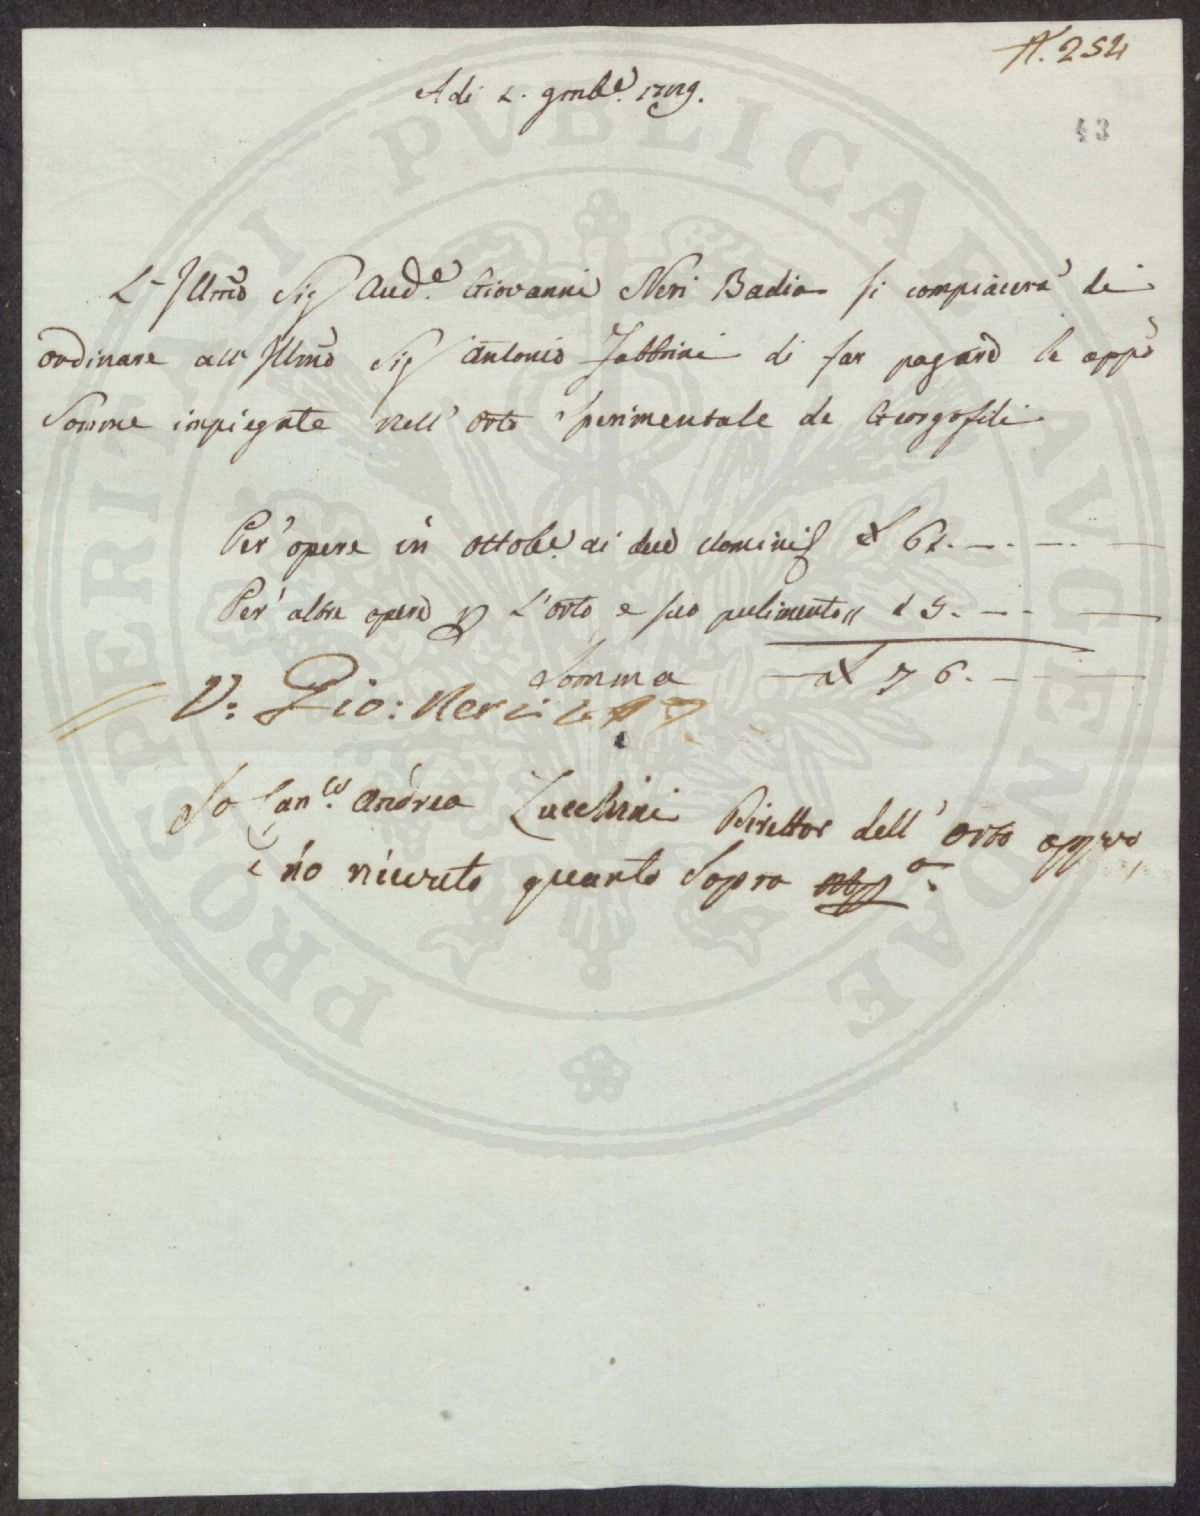 N. 254
Adi 2. 9mb.e 1789.
43
L' Illmo Sig Aud.e Giovanni Neri Badia si compiacerà di
ordinare all' Illmo Sig Antonio Fabbrini di far pagare le appo
Somme inpiegate nell' Orto Sperimentale de Georgofili
Per opere in Ottobe. ai due Uomini £ 61. — . — . —
Per altre opere p L'orto e suo pulimento " 15. — . — —
Somma £ 76. — . — —
V: Gio: Neri
Io Andrea Zucchini Direttor dell' Orto
e ho ricevuto quanto Sopra
PROSPERITATI PVBLICAE AVGENDAE